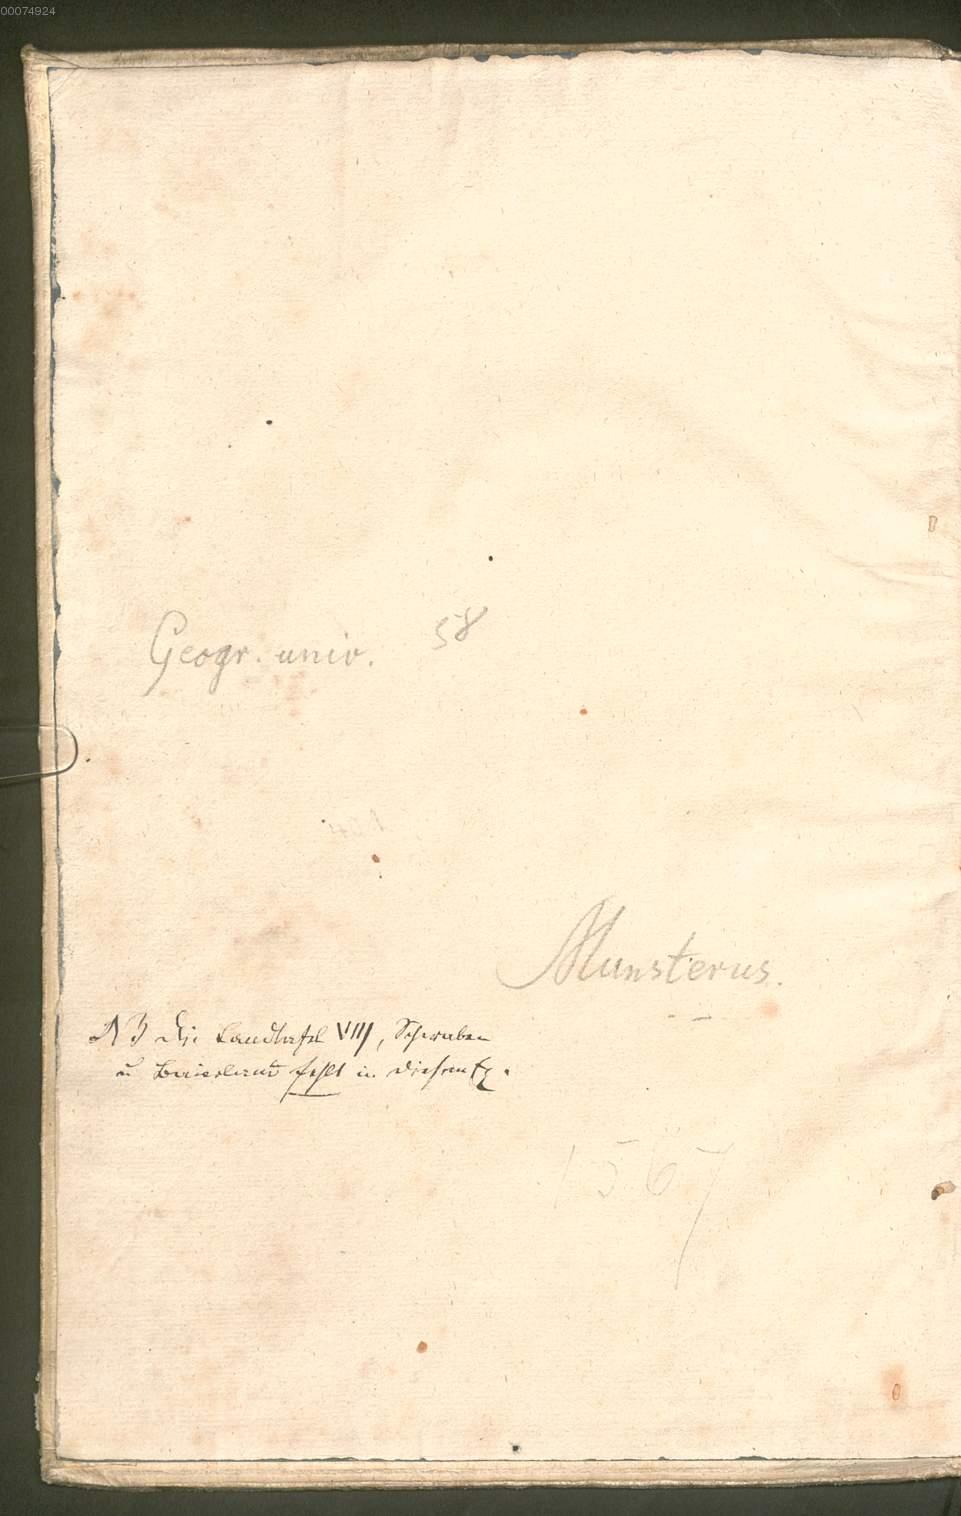 00074924
Geogr. univ. 58
Munsterus.
NB Die Landtafel VIII, Schwaben
u Baierland fehlt in diesem Ex.
1567